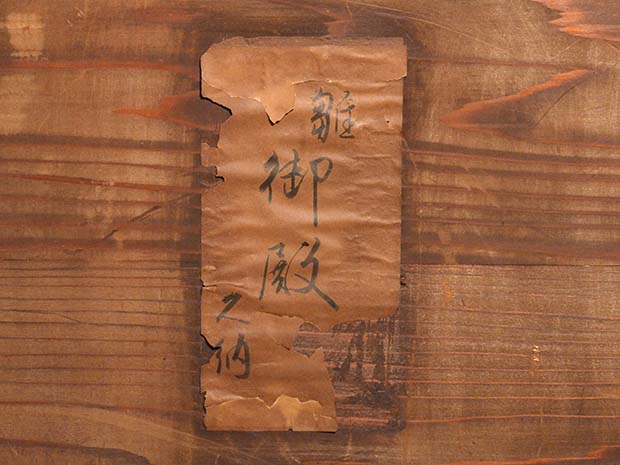 雛
御殿
之納